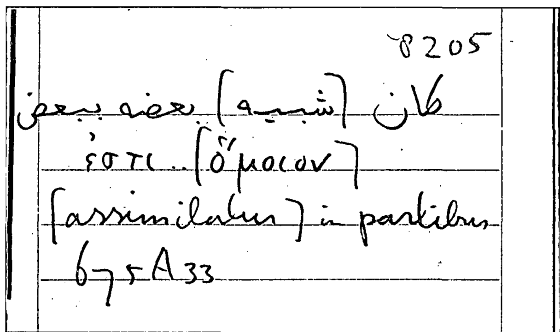 8205
كان [شبيه] بعضه ببعض
ἐστι..[ὅμοιον]
[assimilatur] in partibus
675A33